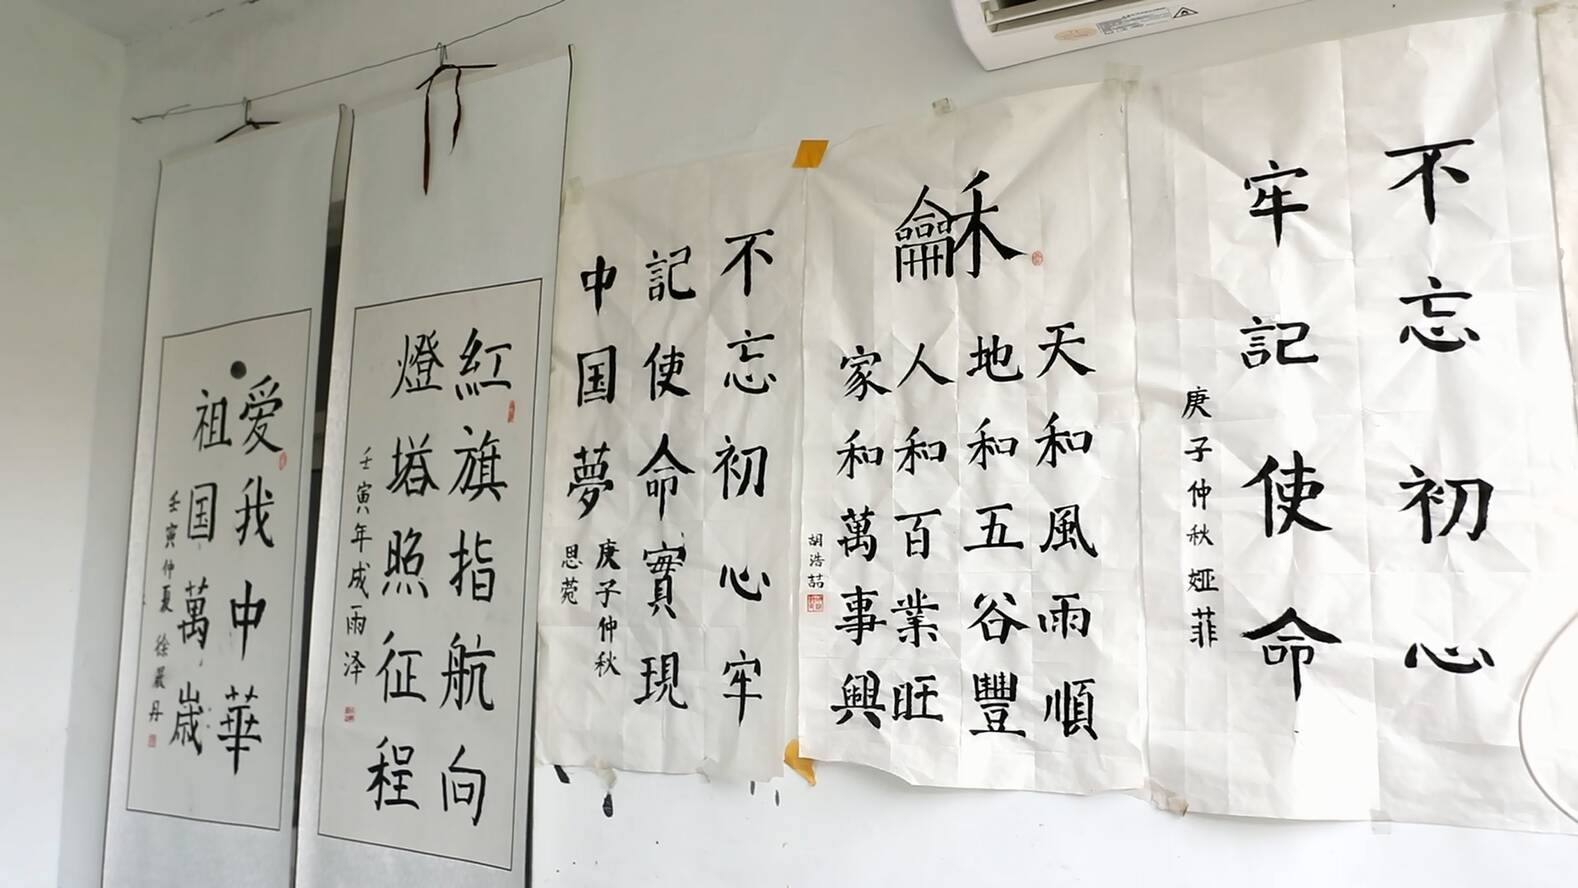 不忘初心
牢記使命
庚子仲秋 婭菲
龢
天和風雨順
地和五谷豐
人和百業旺
家和萬事興
胡浩喆
不忘初心牢
記使命實現
中国夢
庚子仲秋
思菀
紅旗指航向
燈塔照征程
壬寅年成雨泽
愛我中華
祖国萬歳
壬寅仲夏 徐嚴丹